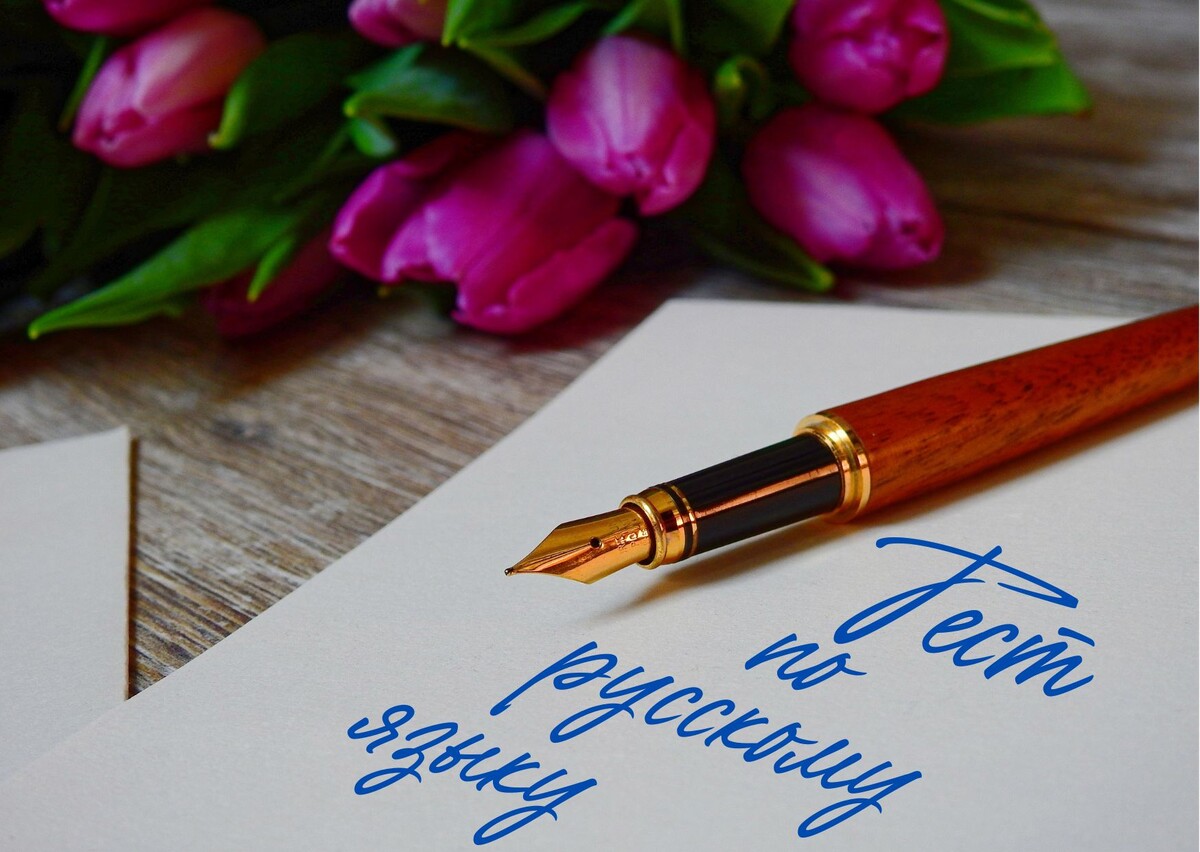 Тест
по
русскому
языку